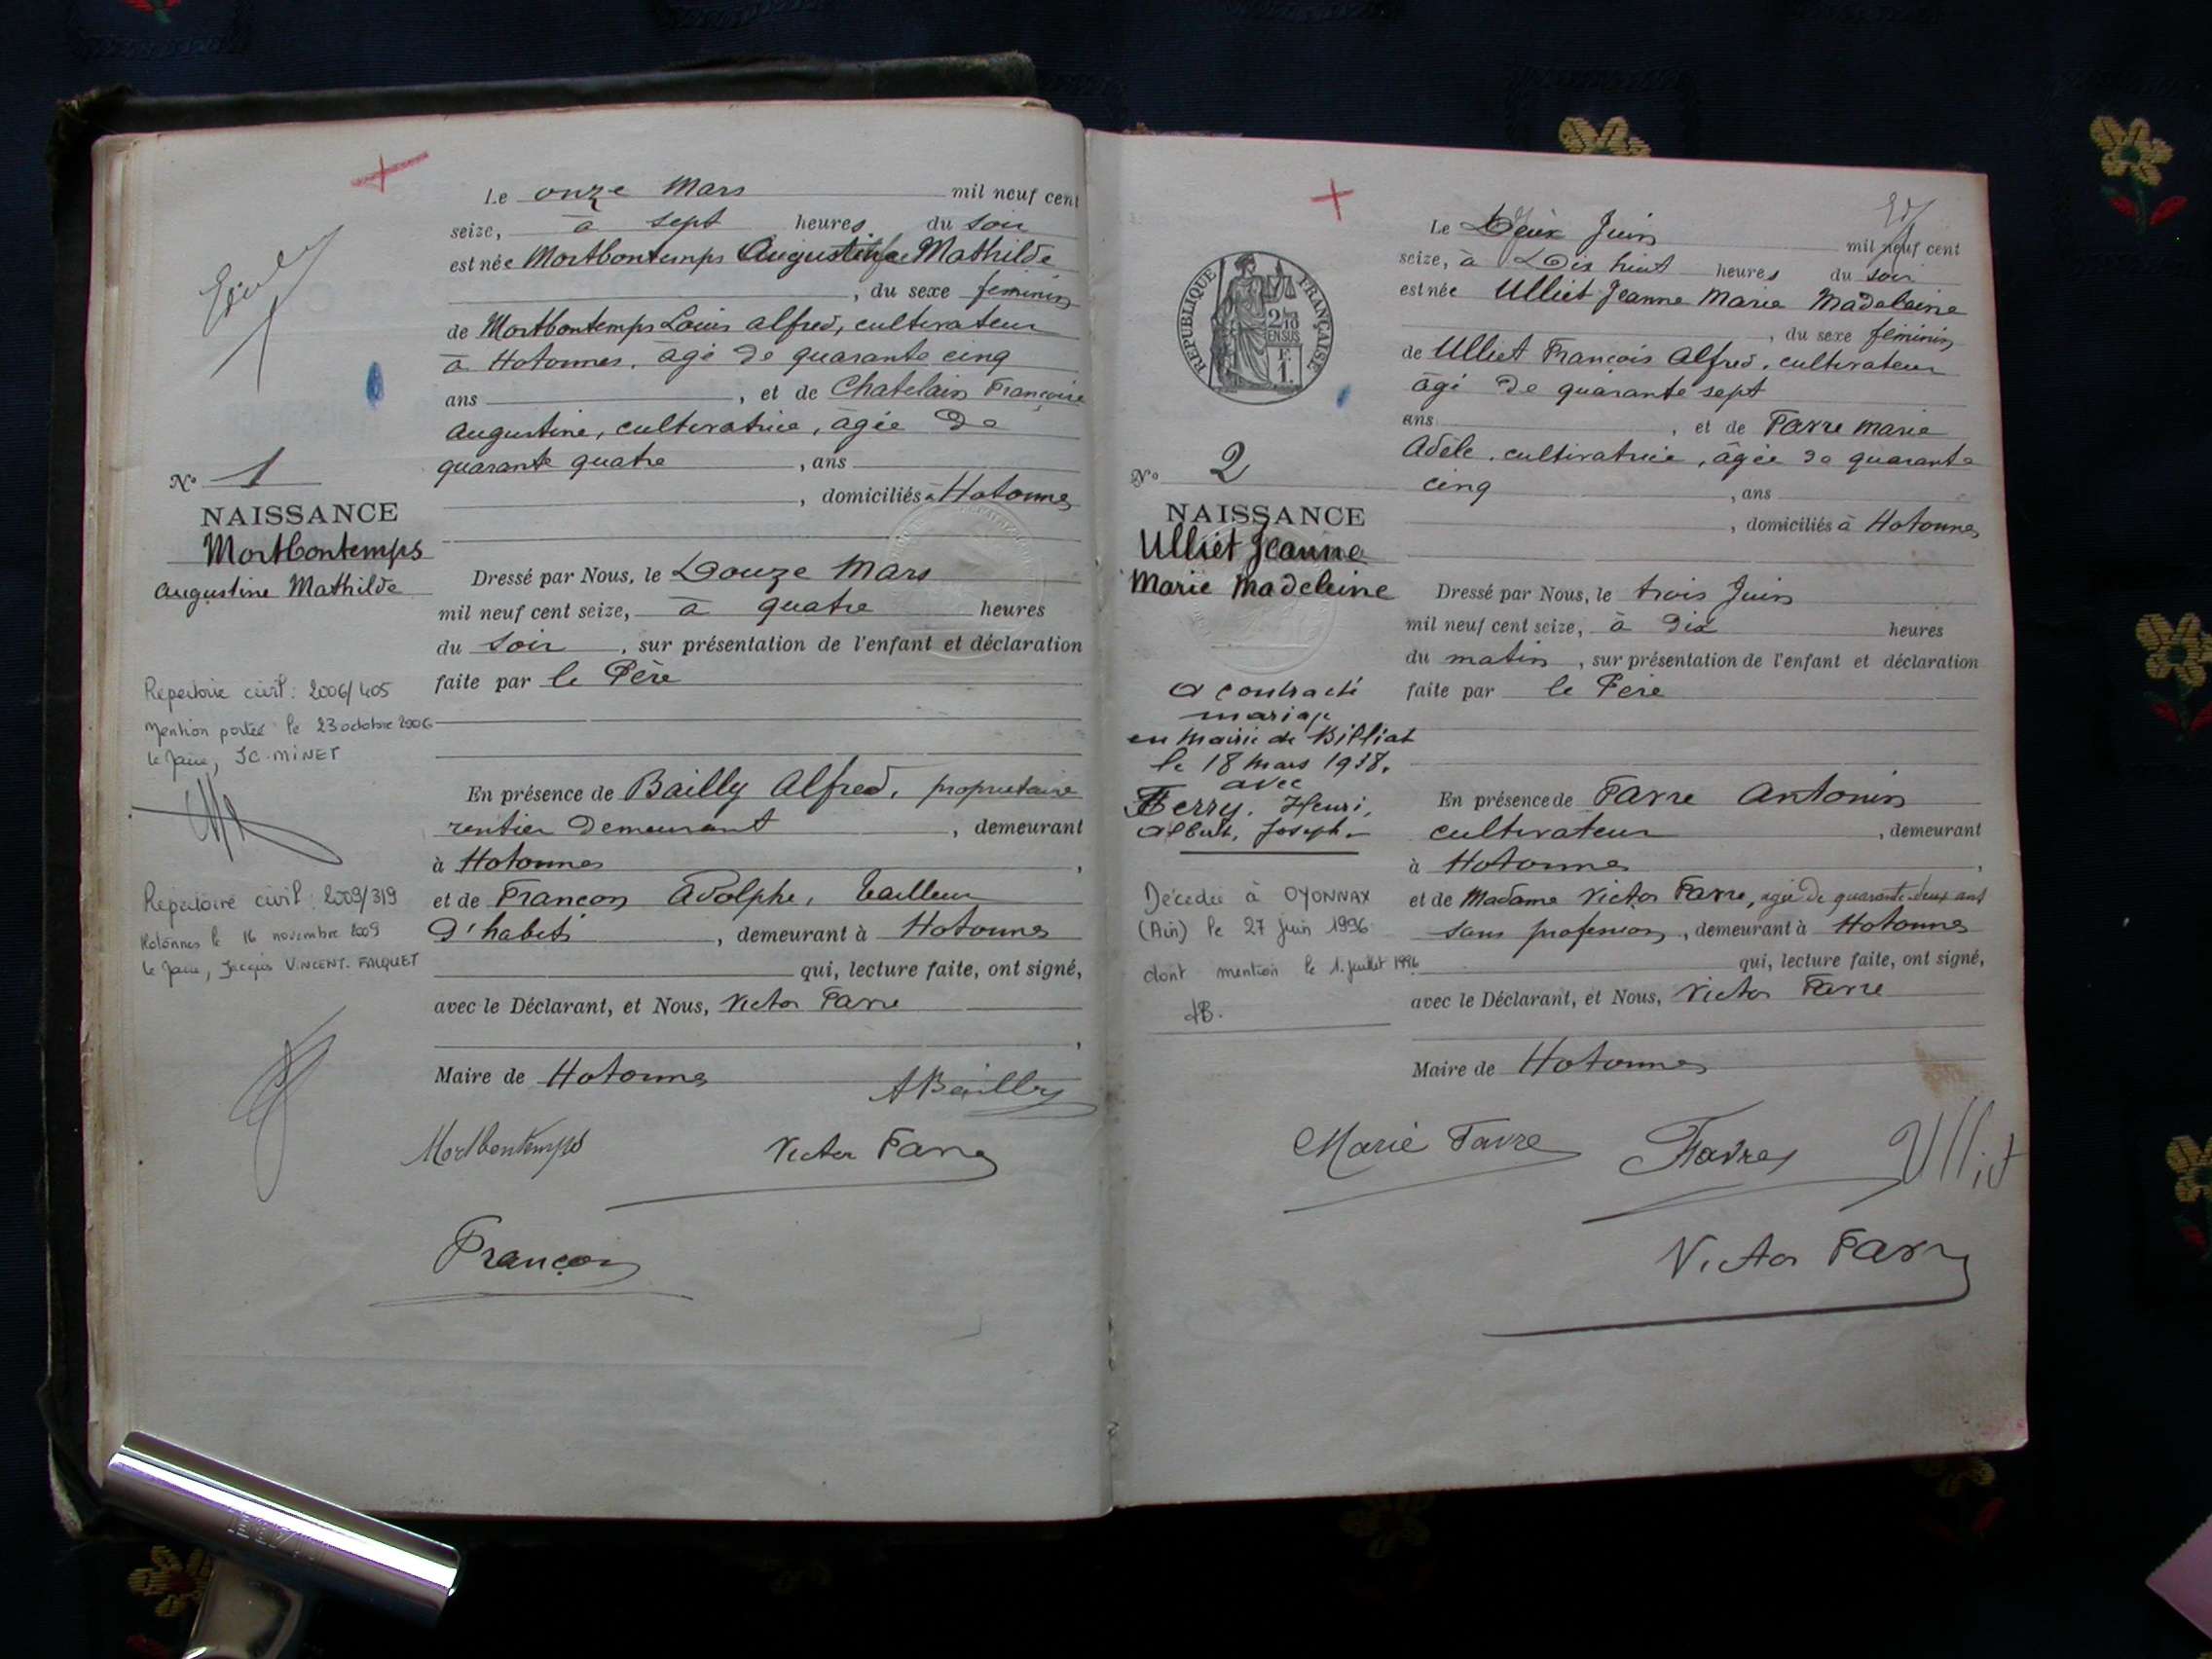 Le onze Mars mil neuf cent
seize, à sept heures du soir
est née Mortbontemps Augustine Mathilde
, du sexe féminin
de Mortbontemps Louis Alfred, cultivateur
à Hotonnes, âgé de quarante cinq
ans , et de Chatelain Françoise
Augustine, cultivatrice, âgée de
quarante quatre , ans
, domiciliés à Hotonnes
N° 1
NAISSANCE
Mortbontemps
Augustine Mathilde
Dressé par Nous, le Douze Mars
mil neuf cent seize, à quatre heures
du soir , sur présentation de l'enfant et déclaration
faite par le Père
Repertoire civil : 2006/405
Mention portée le 23 octobre 2006
le Maire, JC. MINET
En présence de Bailly Alfred, propriétaire
rentier demeurant , demeurant
à Hotonnes ,
et de Françon Adolphe, tailleur
d'habits , demeurant à Hotonnes
qui, lecture faite, ont signé,
avec le Déclarant, et Nous, Victor Favre
,
Maire de Hotonnes
Repertoire civil : 2009/319
Hotonnes le 16 novembre 2009
le Maire, Jacques VINCENT-FALQUET
ABailly
Mortbontemps
Victor Favre
Françon
RÉPUBLIQUE FRANÇAISE
2/10
EN SUS
F.
1.
Le Deux Juin mil neuf cent
seize, à Dix huit heures du soir
est née Ulliet Jeanne Marie Madeleine
, du sexe féminin
de Ulliet François Alfred, cultivateur
âgé de quarante sept
ans , et de Favre Marie
Adèle, cultivatrice, âgée de quarante
cinq , ans
, domiciliés à Hotonnes
N° 2
NAISSANCE
Ulliet Jeanne
Marie Madeleine
Dressé par Nous, le trois Juin
mil neuf cent seize, à dix heures
du matin , sur présentation de l'enfant et déclaration
faite par le Père
a contracté
mariage
en Mairie de Billiat
le 18 mars 1938.
avec
Ferry. Henri,
Albert, Joseph.
En présence de Favre Antonin
cultivateur , demeurant
à Hotonnes ,
et de Madame Victor Favre, agée de quarante-deux ans
sans profession , demeurant à Hotonnes
qui, lecture faite, ont signé,
avec le Déclarant, et Nous, Victor Favre
Maire de Hotonnes
Décédée à OYONNAX
(Ain) le 27 juin 1996
dont mention le 1. juillet 1996
Marie Favre
Favre
Ulliet
Victor Favre